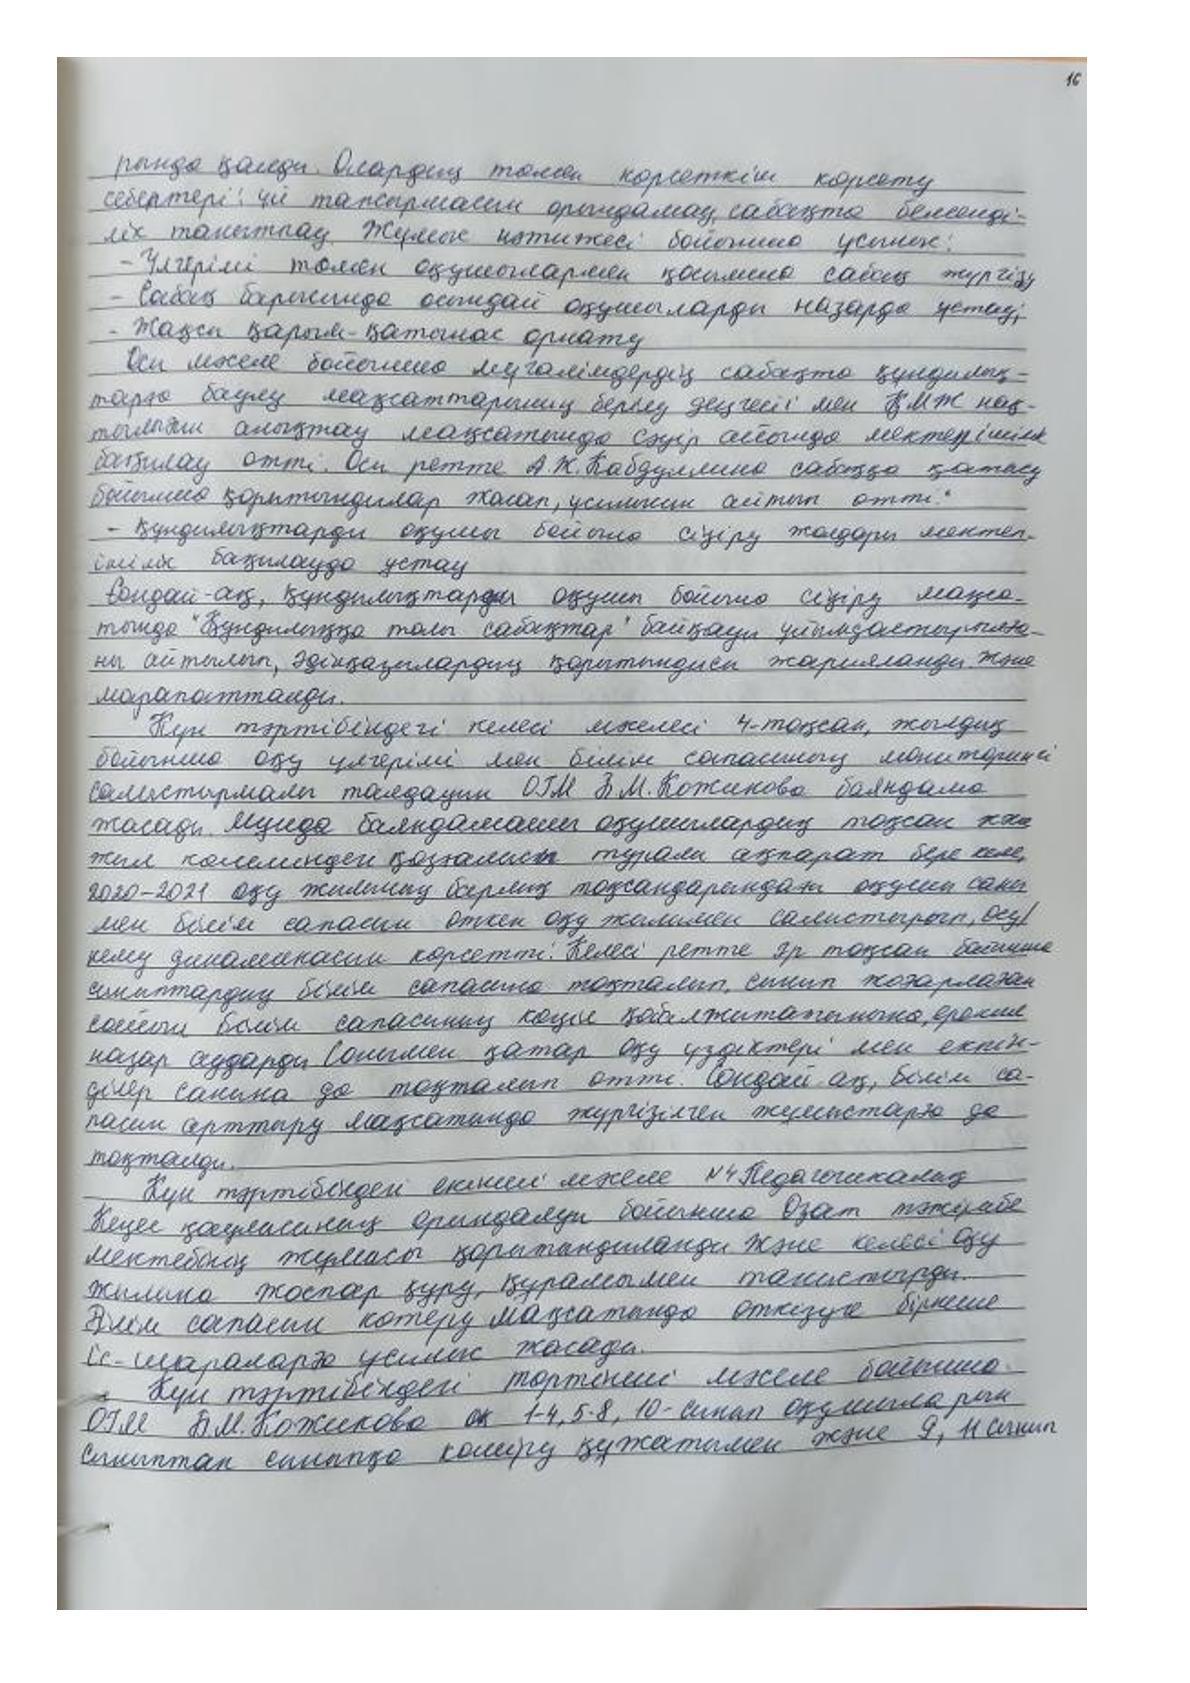 16
рында қалды. Олардың төмен көрсеткіш көрсету
себептері: үй тапсырмасын орындамау, сабақта белсенді-
лік танытпау. Жұмыс нәтижесі бойынша ұсыныс:
- Үлгерімі төмен оқушылармен қосымша сабақ жүргізу
- Сабақ барысында осындай оқушыларды назарда ұстау;
- Жақсы қарым-қатынас орнату
Осы мәселе бойынша мұғалімдердің сабақта құндылық-
тарға баулу мақсаттарының берілу деңгейі мен ҚМЖ нақ-
тылығын анықтау мақсатында сәуір айында мектепішілік
бақылау өтті. Осы ретте А.Ж.Кабдуллина сабаққа қатысу
бойынша қорытындылар жасап, ұсынысын айтып өтті:
- Құндылықтарды оқушы бойына сіңіру жолдары мектеп-
ішілік бақылауда ұстау
Сондай-ақ, құндылықтарды оқушы бойына сіңіру мақса-
тында "Құндылыққа толы сабақтар" байқауы ұйымдастырылға-
ны айтылып, әділқазылардың қорытындысы жарияланды және
марапатталды.
Күн тәртібіндегі келесі мәселесі 4-тоқсан, жылдық
бойынша оқу үлгерімі мен білім сапасының мониторингі
салыстырмалы талдауын ОІМ Б.М.Кожикова баяндама
жасады. Мұнда баяндамашы оқушылардың тоқсан және
жыл көлеміндегі қозғалысы туралы ақпарат бере келе,
2020-2021 оқу жылының барлық тоқсандарындағы оқушы саны
мен білім сапасын өткен оқу жылымен салыстырып, өсу/
кему динамикасын көрсетті. Келесі ретте әр тоқсан бойынша
сыныптардың білім сапасына тоқталып, сынып жоғарлаған
сайын білім сапасының көңіл қобалжытатынына, ерекше
назар аударды. Сонымен қатар оқу үздіктері мен екпін-
ділер санына да тоқталып өтті. Сондай ақ, білім са-
пасын арттыру мақсатында жүргізілген жұмыстарға да
тоқталды.
Күн тәртібіндегі екінші мәселе №4 Педагогикалық
Кеңес қаулысының орындалуы бойынша Озат тәжірибе
мектебінің жұмысы қорытындыланды және келесі оқу
жылына жоспар құру, құрамымен таныстырды.
Білім сапасын көтеру мақсатында өткізуге бірнеше
іс-шараларға ұсыныс жасады.
Күн тәртібіндегі төртінші мәселе бойынша
ОІМ Б.М.Кожикова 1-4, 5-8, 10-сынып оқушыларын
сыныптан сыныпқа көшіру құжатымен және 9, 11 сынып